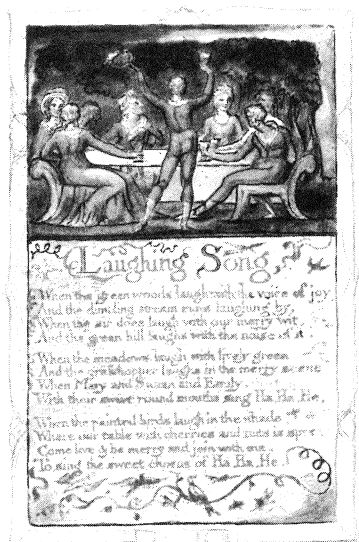 Laughing Song,
When the green woods laugh with the voice of joy
And the dimpling stream runs laughing by,
When the air does laugh with our merry wit,
And the green hill laughs with the noise of it
When the meadows laugh with lively green
And the grasshopper laughs in the merry scene
When Mary and Susan and Emily.
With their sweet round mouths sing Ha, Ha, He,
When the painted birds laugh in the shade
Where our table with cherries and nuts is spread
Come live & be merry and join with me,
To sing the sweet chorus of Ha, Ha, He.